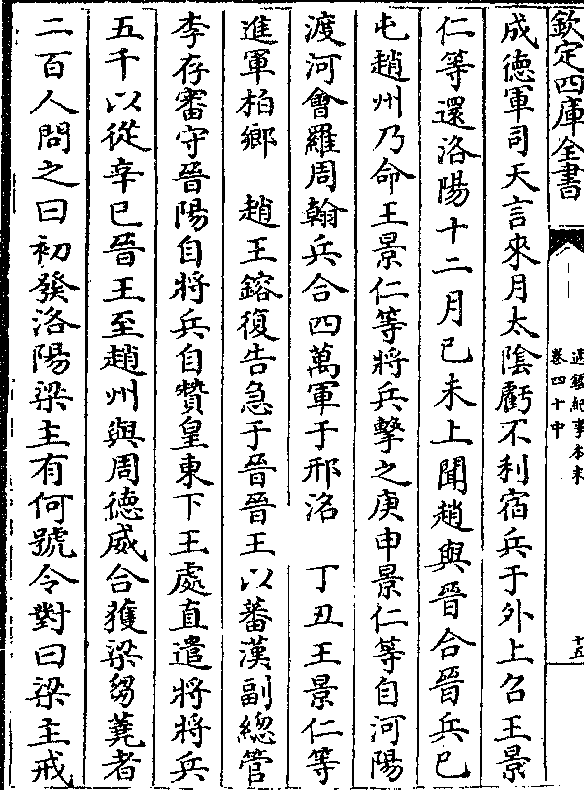 欽定四庫全書
通鑑紀事本末
卷四十中
十五
成德軍司天言來月太陰虧不利宿兵于外上召王景
仁等還洛陽十二月己未上聞趙與晉合晉兵已
屯趙州乃命王景仁等將兵擊之庚申景仁等自河陽
渡河會羅周翰兵合四萬軍于邢洺　丁丑王景仁等
進軍柏鄉　趙王鎔復告急于晉晉王以蕃漢副總管
李存審守晉陽自將兵自贊皇東下王處直遣將將兵
五千以從辛巳晉王至趙州與周德威合獲梁芻蕘者
二百人問之曰初發洛陽梁主有何號令對曰梁主戒